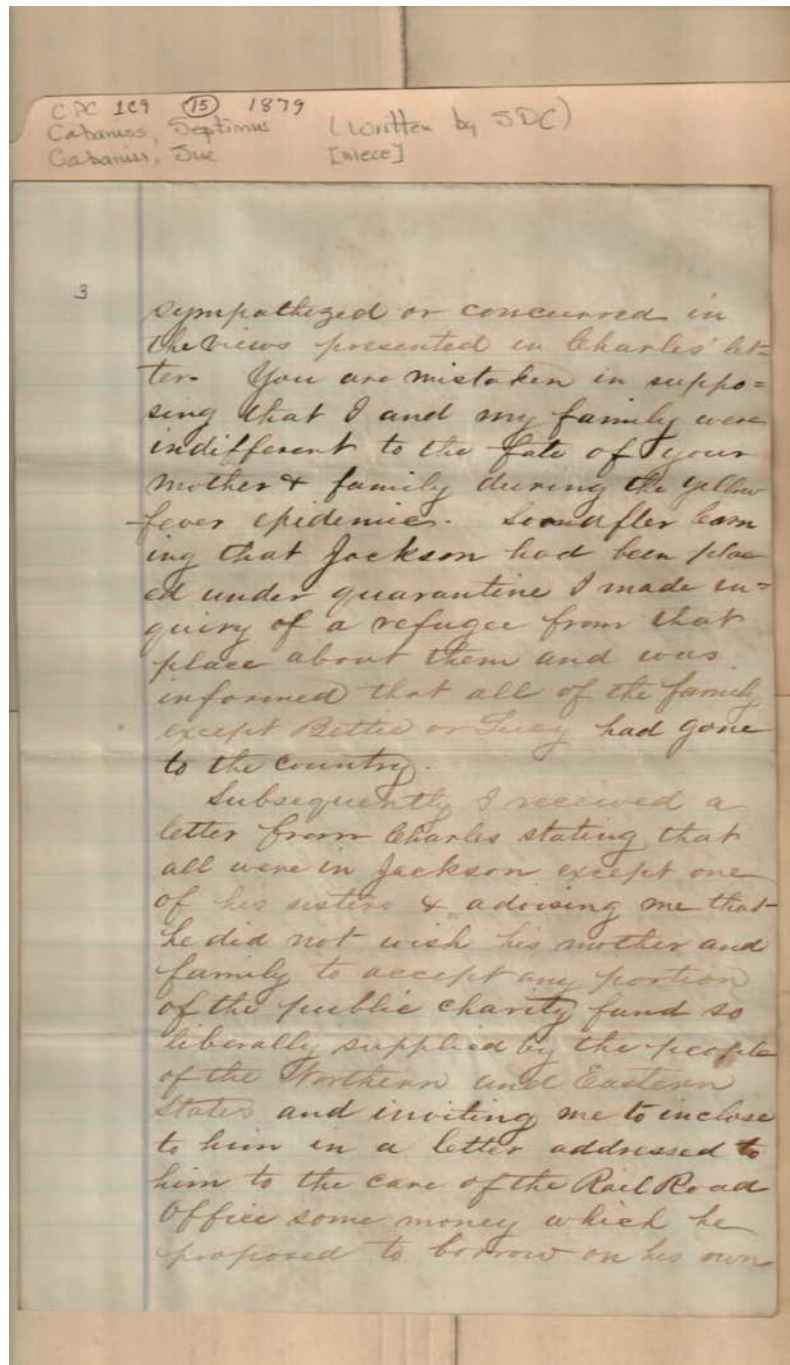 CPC 109 (15) 1879
Cabaniss, Septimus (Written by SDC)
Cabaniss, Sue [niece]
3
sympathized or concurred in
the views presented in Charles' let=
ter. You are mistaken in suppo=
sing that I and my family were
indifferent to the fate of your
mother & family during the yellow
fever epidemic. Soon after learn
ing that Jackson had been plac
ed under quarantine I made in=
quiry of a refugee from that
place about them and was
informed that all of the family
except Bettie or Lucy had gone
to the country.
Subsequently I received a
letter from Charles stating that
all were in Jackson except one
of his sisters & advising me that
he did not wish his mother and
family to accept any portion
of the public charity fund so
liberally supplied by the people
of the Northern and Eastern
States and inviting me to inclose
to him in a letter addressed to
him to the care of the Rail Road
Office some money which he
proposed to borrow on his own